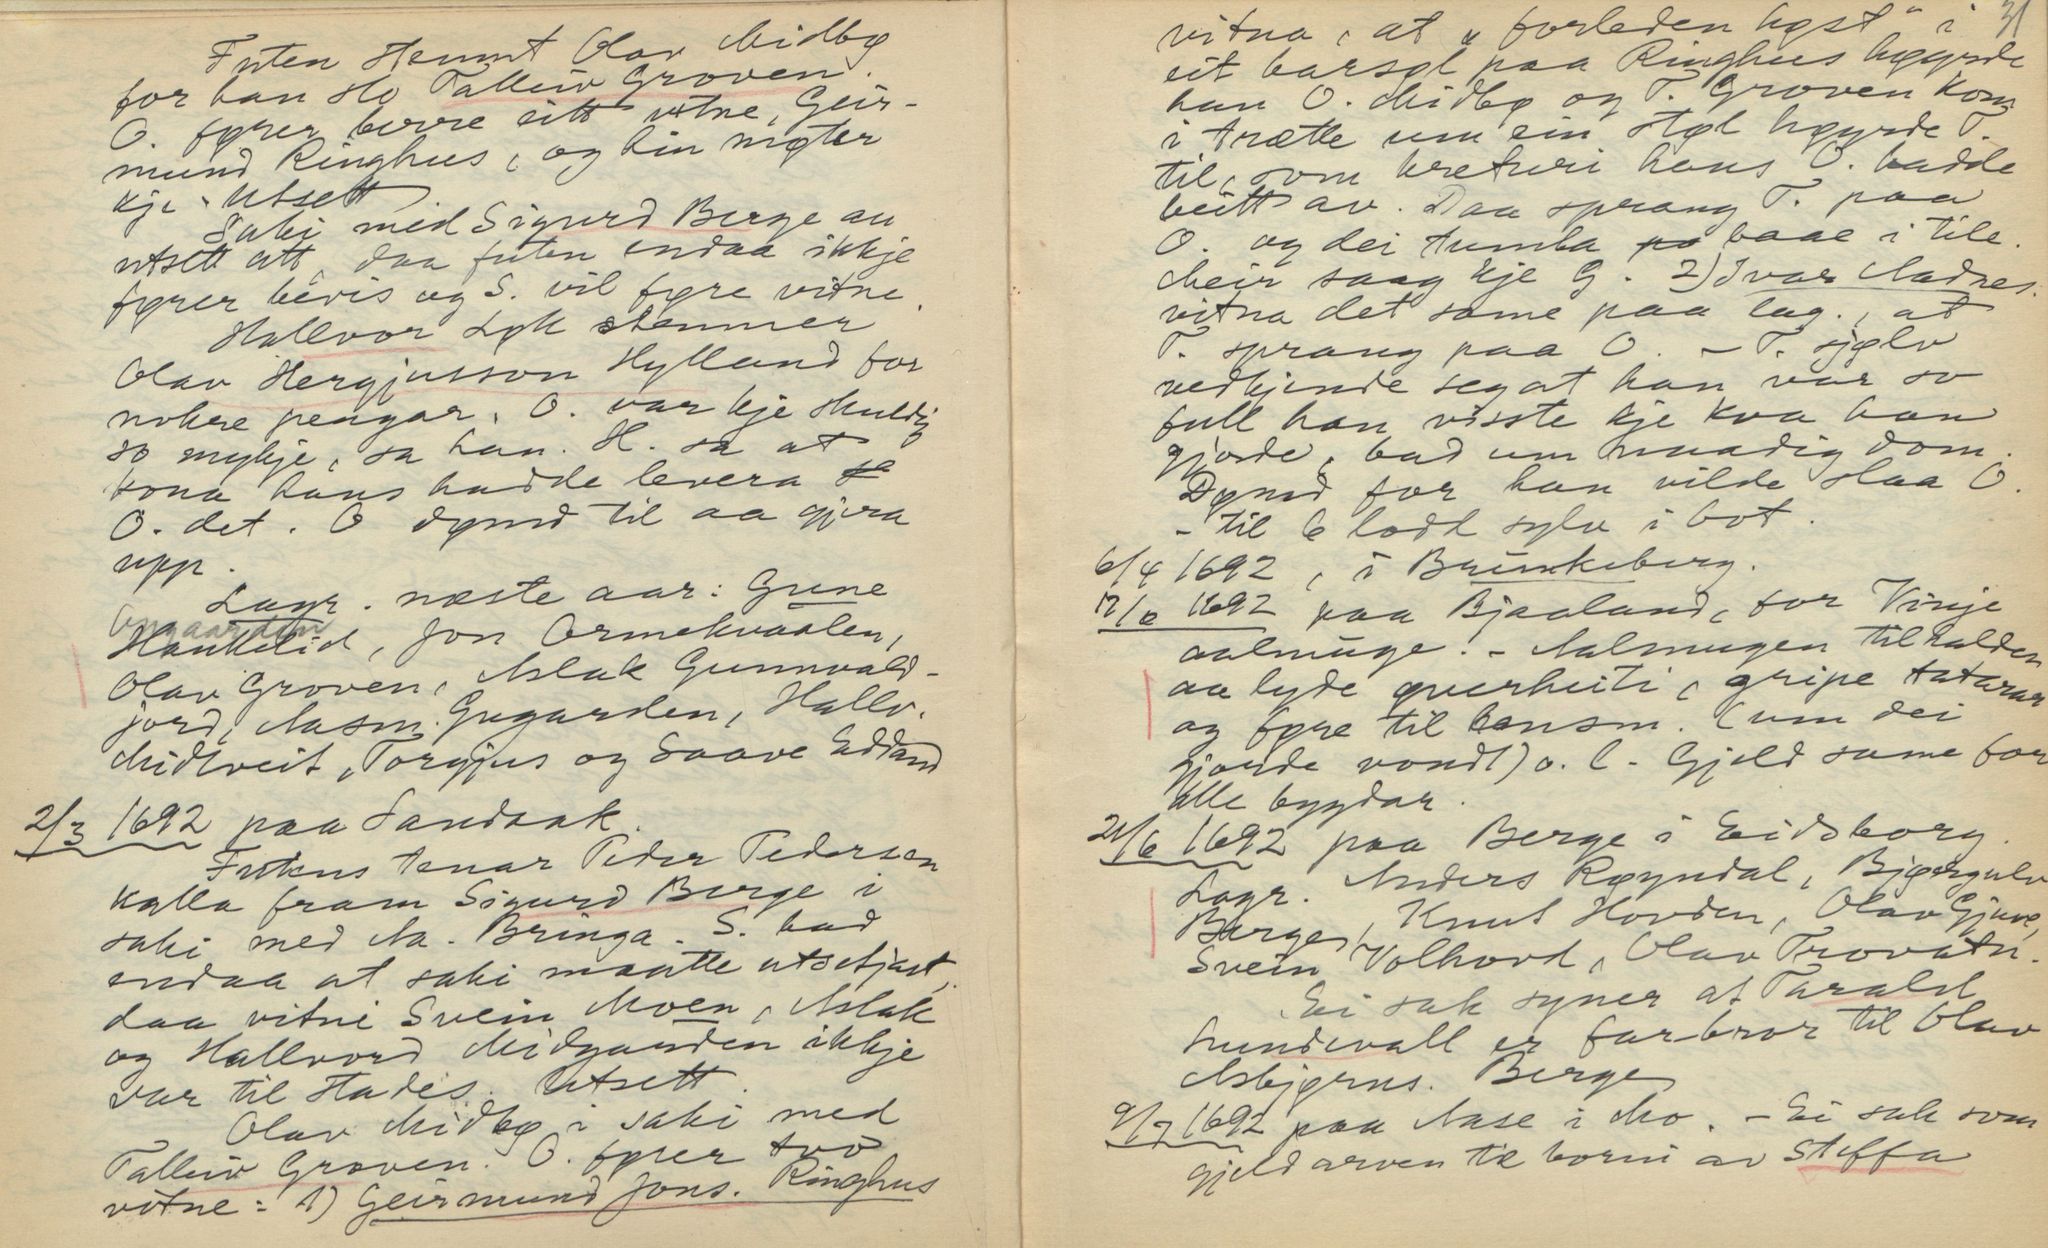 Futen stemnt Olav Midbø
for han slo Talleiv Groven.
O. fører berre eitt vitne, Geir-
mund Ringhus, og hin møter
kje. Utsett
Saki med Sigurd Berge au
utsett att, daa futen endaa ikkje
fører bevis og S. vil føre vitne.
Hallvor Løk stemner
Olav Hergjusson Hylland for
nokre pengar. O. var kje skuldig
so mykje, sa han. H. sa at
kona hans hadde levera
O. det. O dømd til aa gjera
upp.
Lagr. næste aar: Gune
Uppgaarden
Haukelid, Jon Ormekvaalen,
Olav Groven, Aslak Gunnvald-
jord, Aasm. Gugarden, Hallv.
Midtveit, Torgjus og Saave Edland
2/3 1692 paa Sandaak.
Futens tenar Peder Pedersen
kalla fram Sigurd Berge i
saki med Aa. Bringa. S. bad
endaa at saki maatte utsetjast,
daa vitni Svein Moen, Aslak
og Hallvord Midgarden ikkje
var til stades. Utsett.
Olav Midbø i saki med
Talleiv Groven. O. fører tvo
vitne: 1) Geirmund Jons. Ringhus
31
vitna, at "forleden høst" i
eit barsøl paa Ringhus høyrde
han O. Midbø og T. Groven kom
i trætte um ein støl høyrde T.
til, som kreturi hans O. hadde
beitt av. Daa sprang T. paa
O. og dei tumla baae i tile.
Meir saag kje G. 2) Ivar Aadnes.
vitna det same paa lag., at
T. sprang paa O. – T. sjølv
vedkjende seg at han var so
full han visste kje kva han
gjorde, bad um naadig dom.
Dømd for han vilde slaa O.
– til 6 lodd sylv i bot.
6/4 1692, i Brunkeberg.
17/6 1692 paa Bjaaland, for Vinje
aalmuge. – Aalmugen tilhalden
aa lyde øverheiti, gripe tatarar
og føre til lensm. (um dei
gjorde vondt) o. l. – Gjeld same for
alle bygdar.
21/6 1692 paa Berge i Eidsborg.
Lagr. Anders Røyndal, Bjørgulv
Berge, Knut Hovden, Olav Gjuve,
Svein Volhovd, Olav Trovatn.
Ei sak syner at Tarald
Sundevall er farbror til Olav
Asbjørns. Berge
9/7 1692 paa Aase i Mo. – Ei sak som
gjeld arven til borni av Steffa